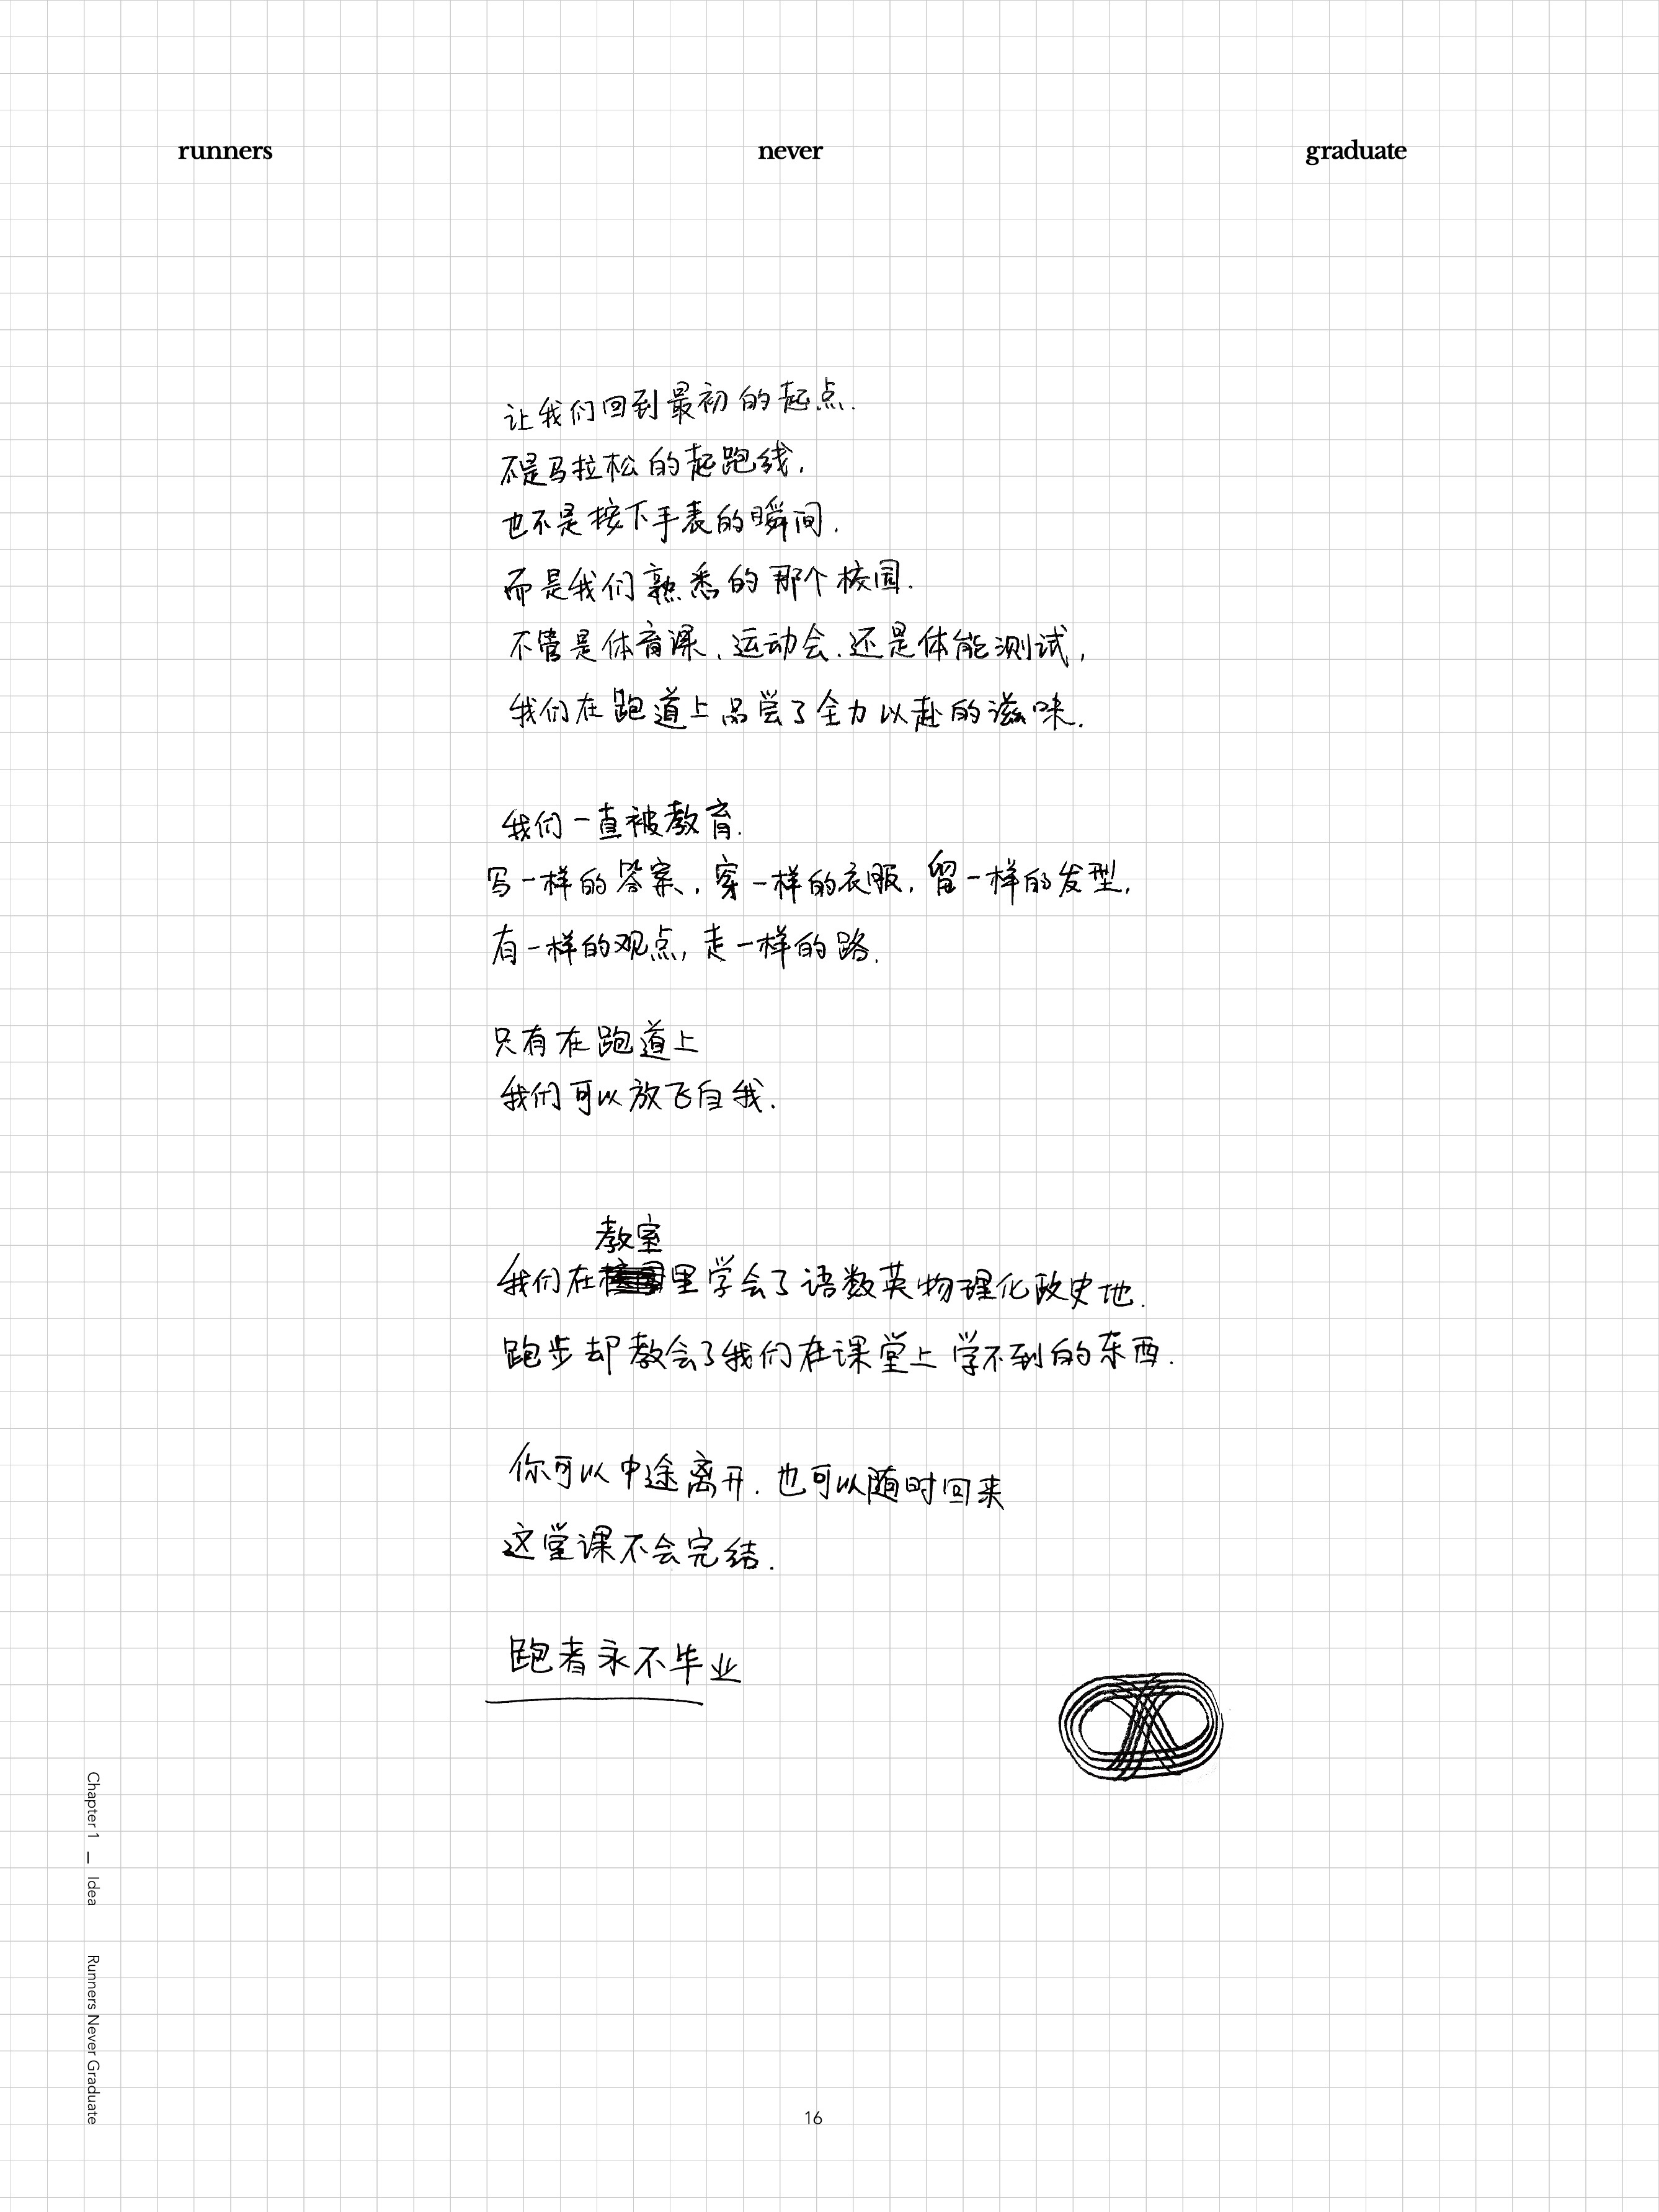 runners never graduate
让我们回到最初的起点.
不是马拉松的起跑线,
也不是按下手表的瞬间,
而是我们熟悉的那个校园.
不管是体育课、运动会、还是体能测试,
我们在跑道上品尝了全力以赴的滋味.
我们一直被教育.
写一样的答案,穿一样的衣服,留一样的发型,
有一样的观点,走一样的路.
只有在跑道上
我们可以放飞自我.
教室
我们在里学会了语数英物理化政史地.
跑步却教会了我们在课堂上学不到的东西.
你可以中途离开.也可以随时回来
这堂课不会完结.
跑者永不毕业
Chapter 1 — Idea Runners Never Graduate
16